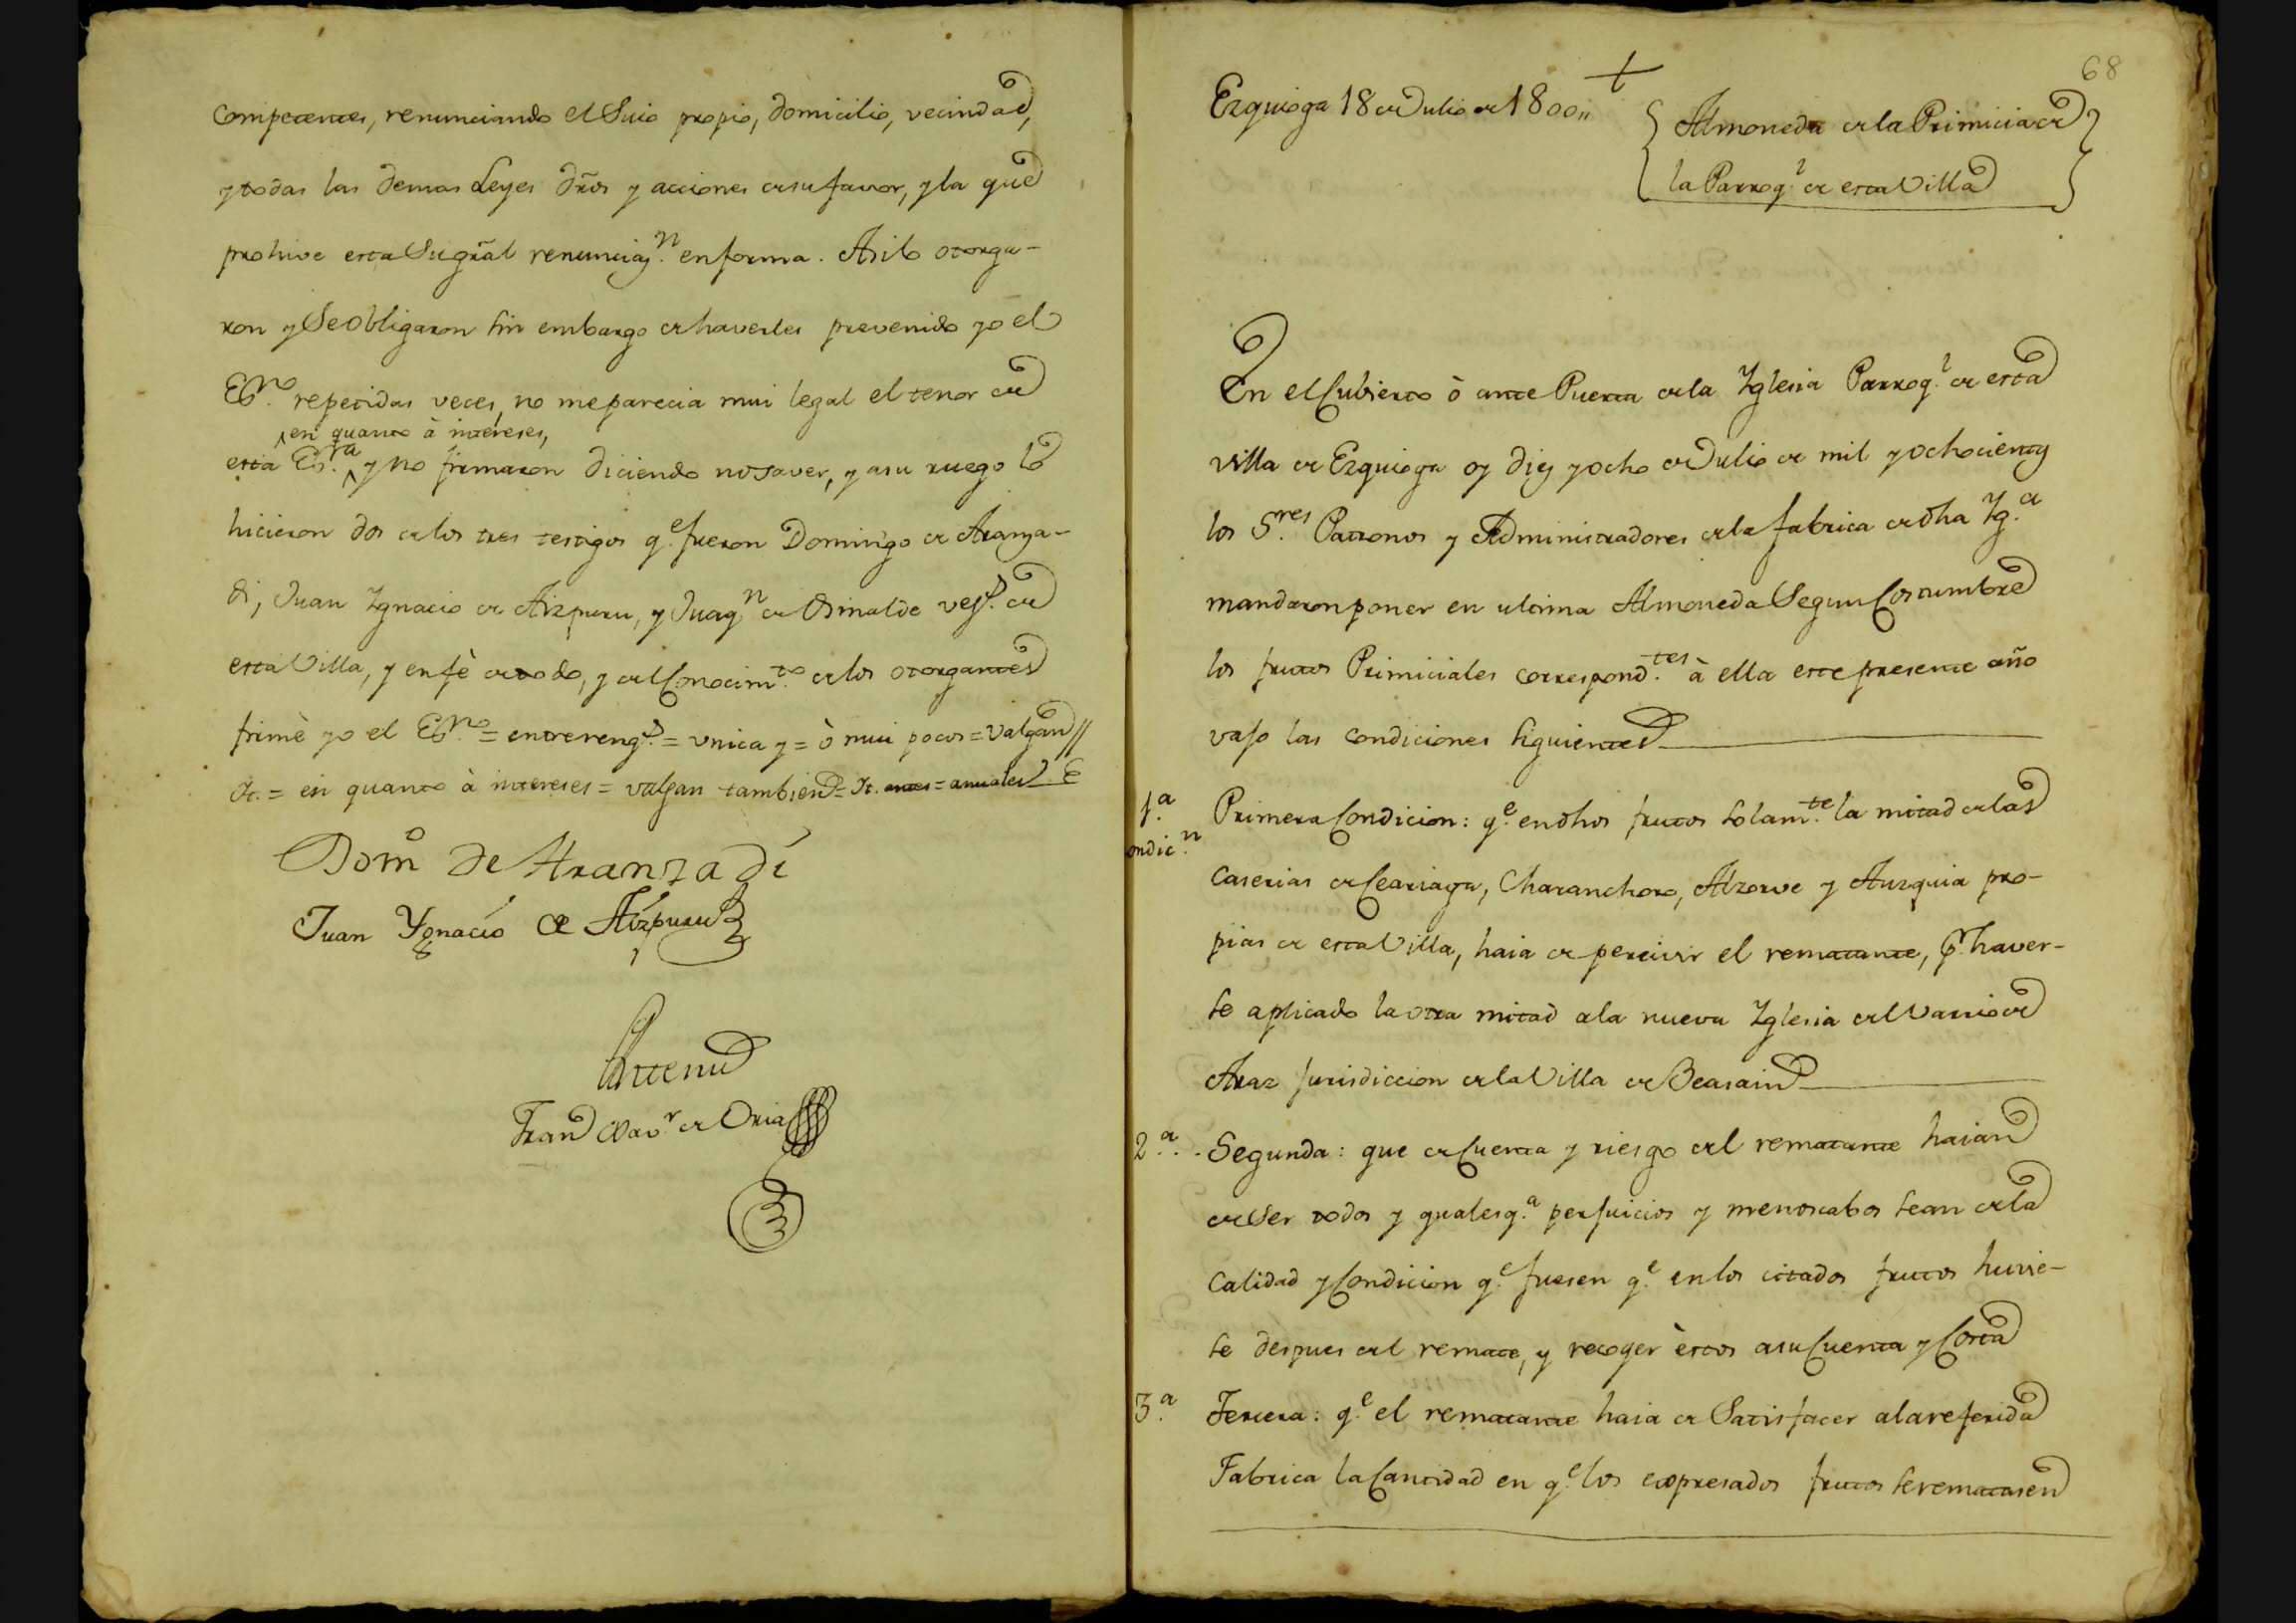 competentes, renunciando el Suio propio, domicilio, vecindad,
y todas las demas Leyes dr̃os y acciones de su favor, y la que
prohive esta Su gr̃al renunciaz.n en forma. Asi lo otorga-
ron y Se obligaron sin embargo de haverles prevenido yo el
Esno. repetidas veces, no me parecia mui legal el tenor de
en quanto à intereses,
esta Es.ra y no firmaron diciendo no saver, y a su ruego lo
hicieron dos de los tres testigos q.e fueron Domingo de Aranza-
di, Juan Ygnacio de Aizpuru, y Juaq.n de Osinalde vez.s de
esta Villa, y en fè de todo, y del Conocim.to de los otorgantes
firmè yo el Esno. = entrereng.s = vnica y = ò mui pocos = valgan //
Ot. = en quanto à intereses = valgan tambien = Ot. antes = anuales
Dom.o de Aranzadi
Juan Ygnacio de Aizpuru
Ante mi
Fran.co Xav.r de Oria
68
Ezquioga 18 de Julio de 1800,,
Almoneda de la Primicia de
la Parroq.l de esta Villa
En el Cubierto ò ante Puerta de la Yglesia Parroq.l de esta
villa de Ezquioga oy diez y ocho de Julio de mil y ochocientos
los S.res Patronos y Administradores de la fabrica de dha Yg.a
mandaron poner en ultima Almoneda Segun Costumbre
los frutos Primiciales correspond.tes à ella este presente año
vajo las condiciones siguientes
1.a
ondic.n
Primera Condicion: q.e en dhos frutos solam.te la mitad de las
Caserias de Leariaga, Charanchoro, Alzorve y Auzquia pro-
pias de esta Villa, haia de percivir el rematante, p.r haver-
se aplicado la otra mitad a la nueva Yglesia del Varrio de
Araz jurisdiccion de la Villa de Beasain
2.a
Segunda: que de Cuenta y riesgo del rematante haian
de Ser todos y qualesq.a perjuicios y menoscabos sean de la
Calidad y Condicion q.e fuesen q.e en los citados frutos huvie-
se despues del remate, y recoger èstos a su Cuenta y Costa
3.a
Tercera: q.e el rematante haia de Satisfacer a la referida
Fabrica la Cantidad en q.e los expresados frutos se rematasen